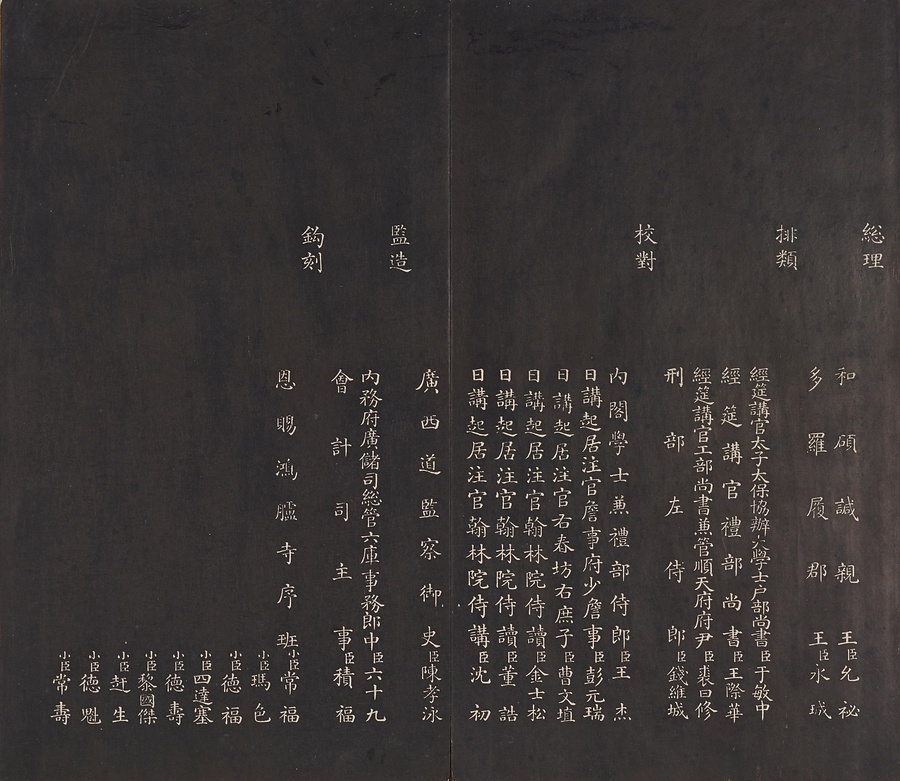 総理
和碩諴親王臣允祕
多羅履郡王臣永珹
排類
經筵講官太子太保協辦大學士戶部尚書臣于敏中
經筵講官禮部尚書臣王際華
經筵講官工部尚書兼管順天府府尹臣裘曰修
刑部左侍郎臣錢維城
校對
內閣學士兼禮部侍郎臣王杰
日講起居注官詹事府少詹事臣彭元瑞
日講起居注官右春坊右庶子臣曹文埴
日講起居注官翰林院侍讀臣金士松
日講起居注官翰林院侍讀臣董誥
日講起居注官翰林院侍講臣沈初
監造
廣西道監察御史臣陳孝泳
內務府廣儲司総管六庫事務郎中臣六十九
會計司主事臣積福
鈎刻
恩賜鴻臚寺序班小臣常福
小臣瑪色
小臣德福
小臣四達塞
小臣德壽
小臣黎國傑
小臣赶生
小臣德魁
小臣常壽